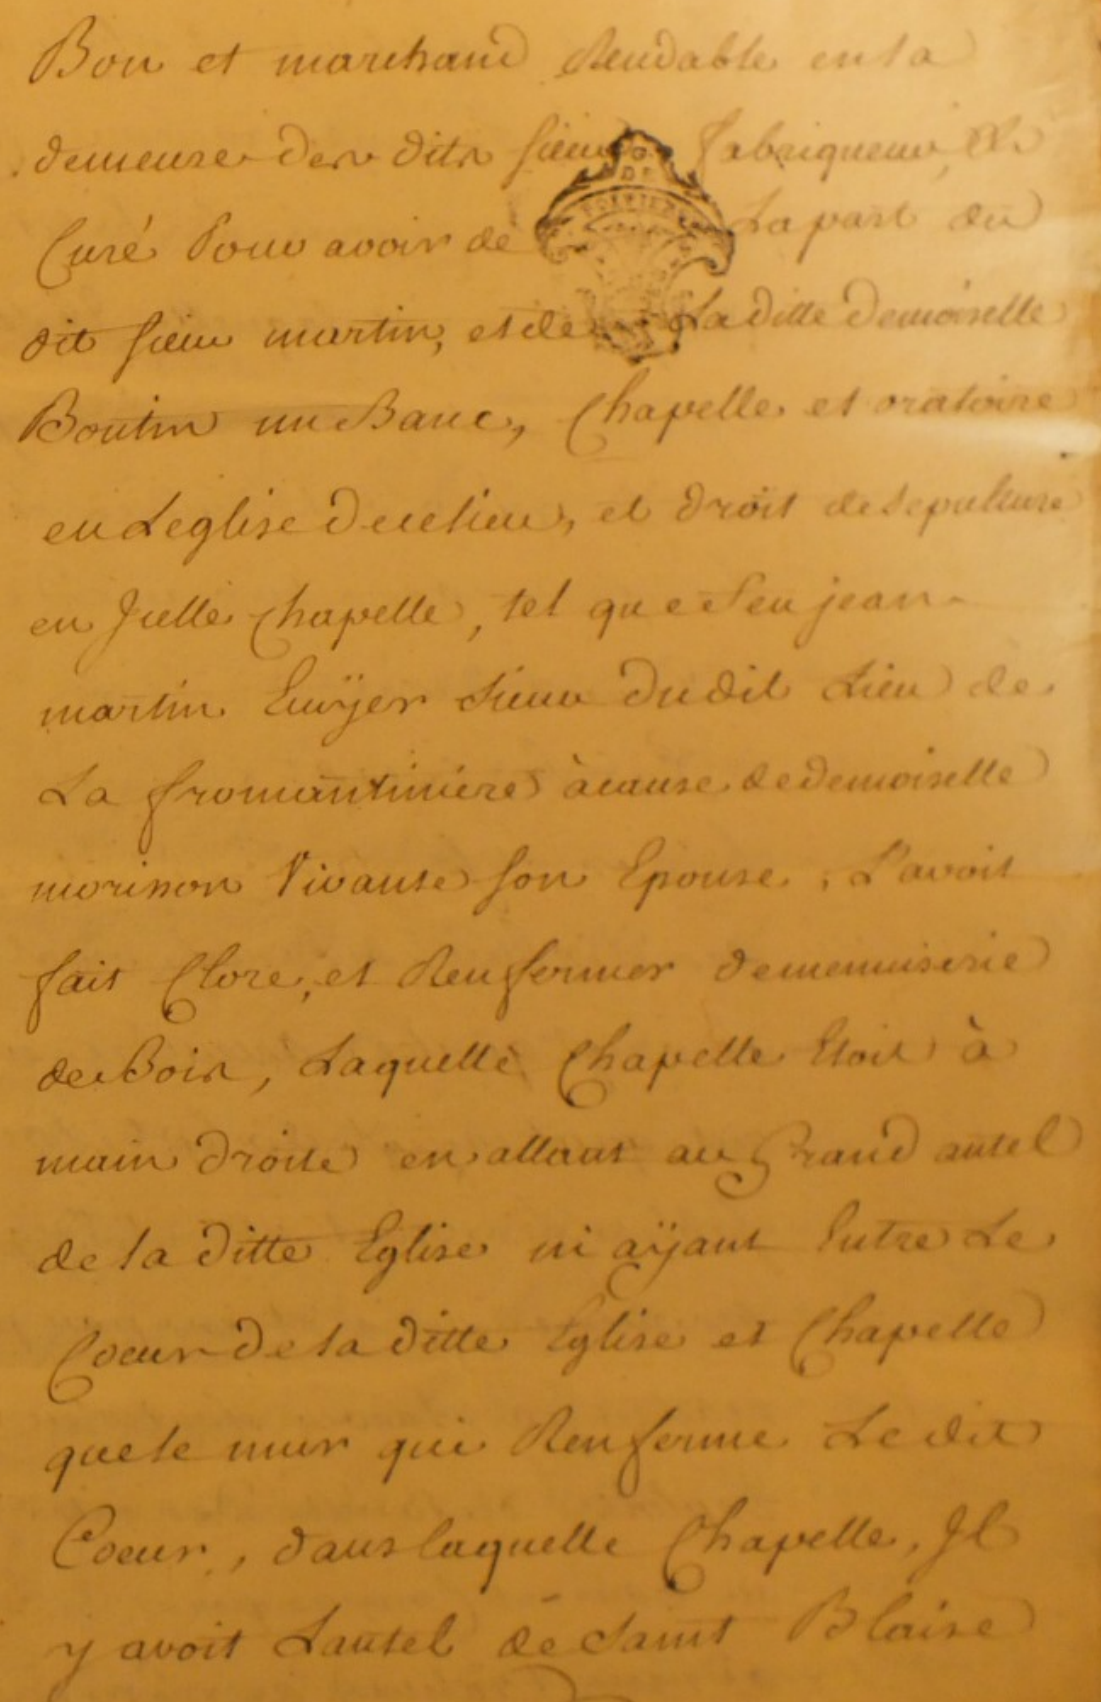 Bon et marchand Rendable en la
demeure des dits sieurs fabriqueur, et
Curé Pour avoir de La part du
dit sieur martin, et de La ditte Demoiselle
Boutin un Banc, Chapelle et oratoire
en Leglise De ce lieu, et droit de sepulture
en Jcelle Chapelle, tel que feu jean
martin Ecuÿer Sieur Dudit Lieu de
La fromantiniere à cause de demoiselle
morisson Vivante son Epouse, L'avoit
fait Clore, et Renfermer de menuiserie
de Bois, Laquelle Chapelle Etoit à
main droite en allant au Grand autel
de la ditte Eglise ni aÿant Entre Le
Coeur De la ditte Eglise et Chapelle
que le mur qui Renferme Le dit
Coeur, dans laquelle Chapelle, Jl
y avoit Lautel de Saint Blaise
DE